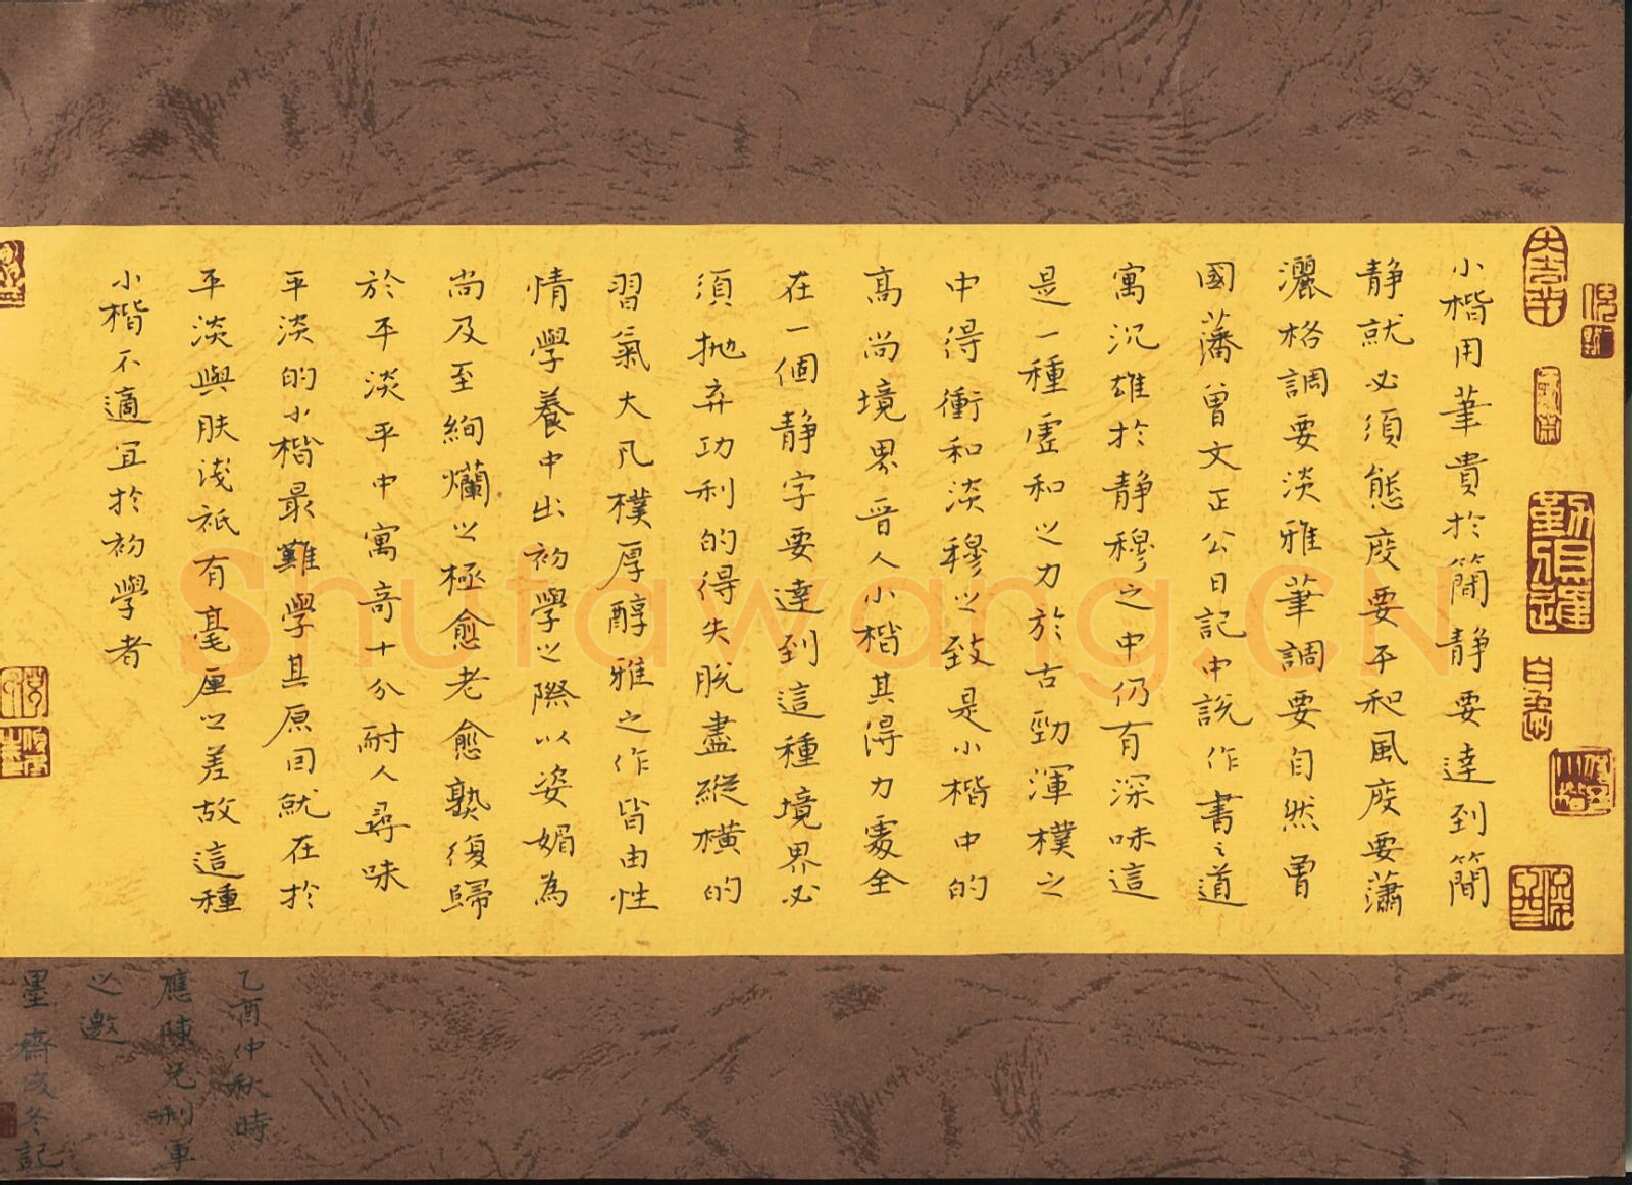 小楷用筆貴於簡静要達到簡
静就必須態度要平和風度要蕭
灑格調要淡雅筆調要自然曾
國藩曾文正公日記中説作書之道
寓沉雄於静穆之中仍有深味這
是一種虛和之力於古勁渾樸之
中得衝和淡穆之致是小楷中的
高尚境界晉人小楷其得力處全
在一個静字要達到這種境界必
須抛弃功利的得失脱盡縱横的
習氣大凡樸厚醇雅之作皆由性
情學養中出初學之際以姿媚為
尚及至絢爛之極愈老愈熟復歸
於平淡平中寓奇十分耐人尋味
平淡的小楷最難學其原因就在於
平淡與膚淺祇有毫厘之差故這種
小楷不適宜於初學者
乙酉仲秋時
應陳兄利軍
之邀
墨齋冬記
Shufawang.CN